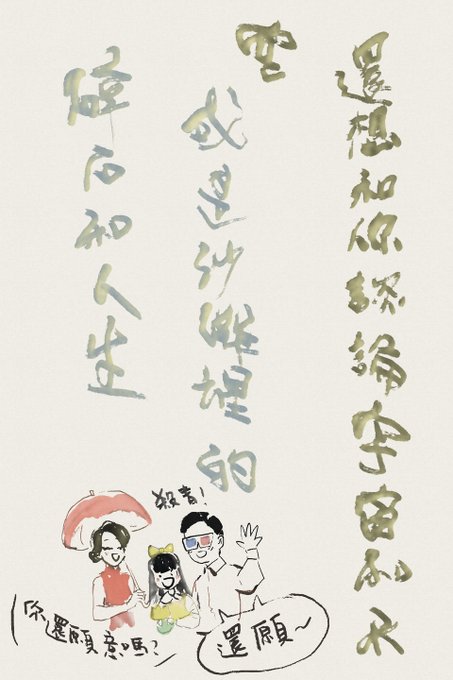 還想和你談論宇宙和天
空
或是沙灘裡的
碎石和人生
殺青!
你還願意嗎?
還願~